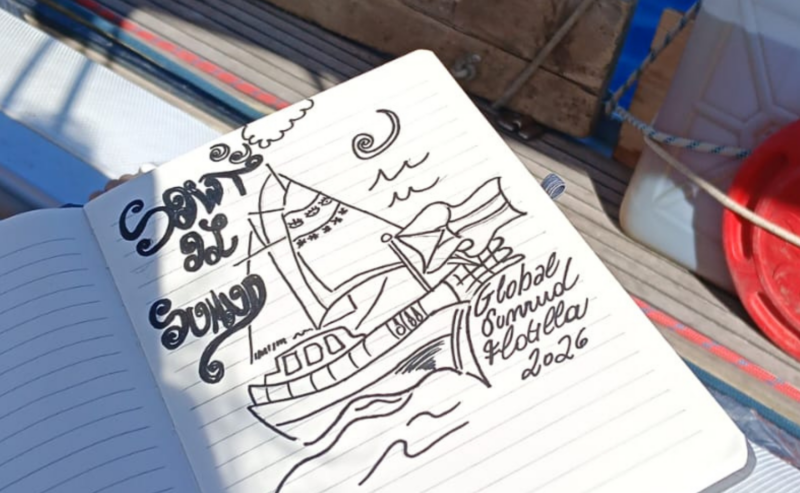 SOWT
al
SUMUD
Global
Sumud
Flotilla
2026